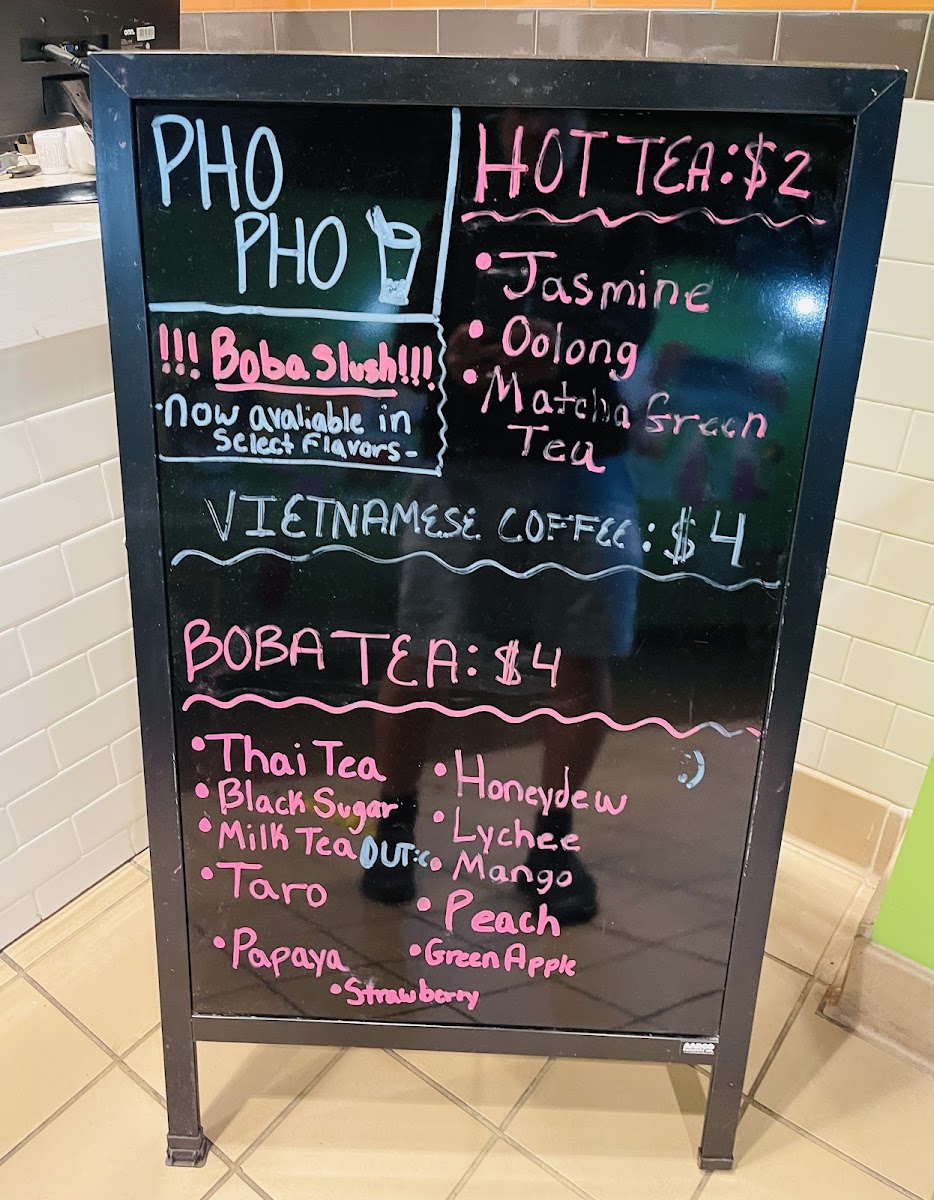 PHO
PHO
!!! Boba Slush!!!
·Now avaliable in
Select Flavors-
HOT TEA: $2
• Jasmine
• Oolong
• Matcha Green
Tea
VIETNAMESE COFFEE: $4
BOBA TEA: $4
• Thai Tea
• Black Sugar
• Milk Tea OUT :c
• Taro
• Papaya
• Strawberry
:)
• Honeydew
• Lychee
• Mango
• Peach
• Green Apple
onn.
AARCO